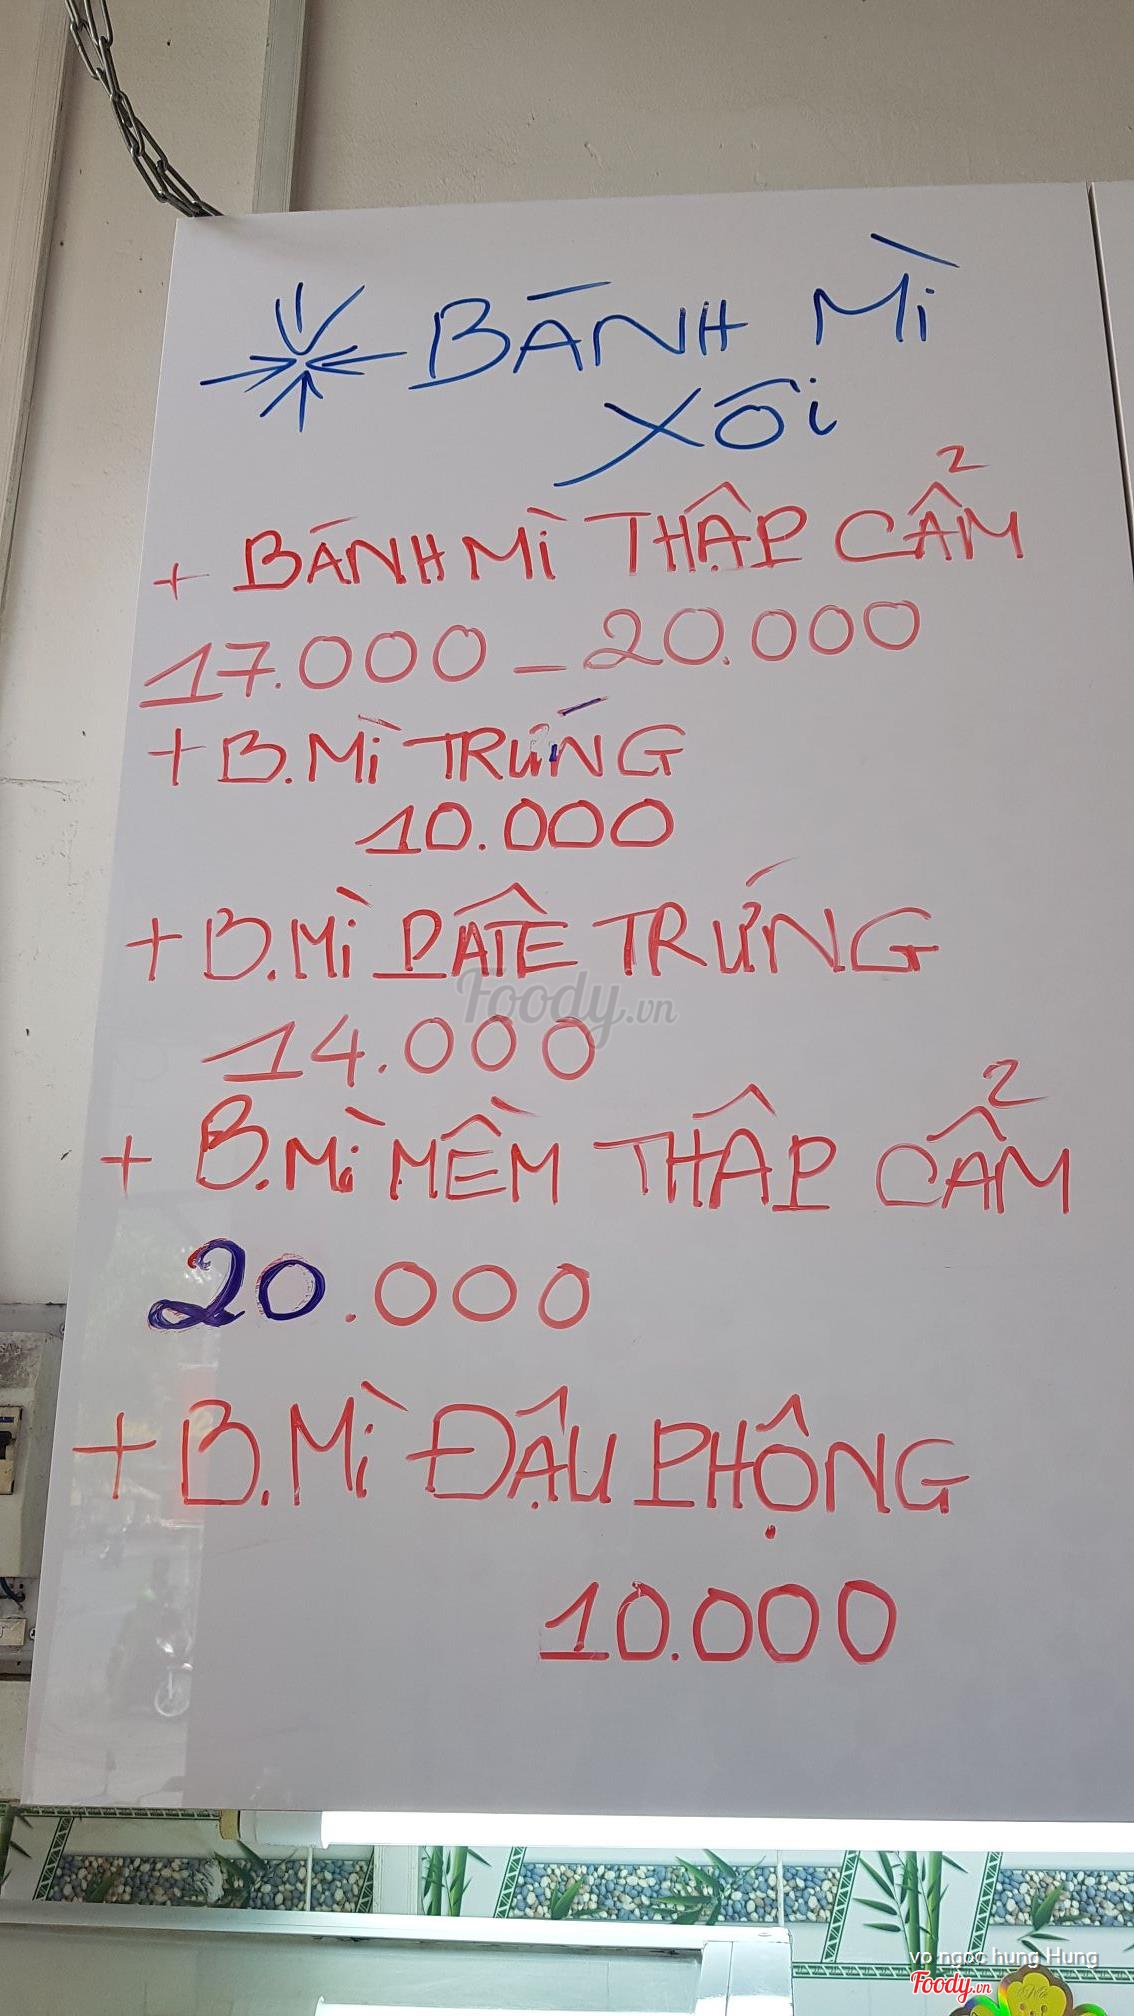 BÁNH MÌ
XÔI
+ BÁNH MÌ THẬP CẨM
17.000 - 20.000
+ B.MÌ TRỨNG
10.000
+ B.MÌ PATÊ TRỨNG
Foody.vn
14.000
+ B.MÌ MỀM THÂP CẨM
20.000
+ B.MÌ ĐẬU PHỘNG
10.000
vo ngoc hung Hung
Foody.vn